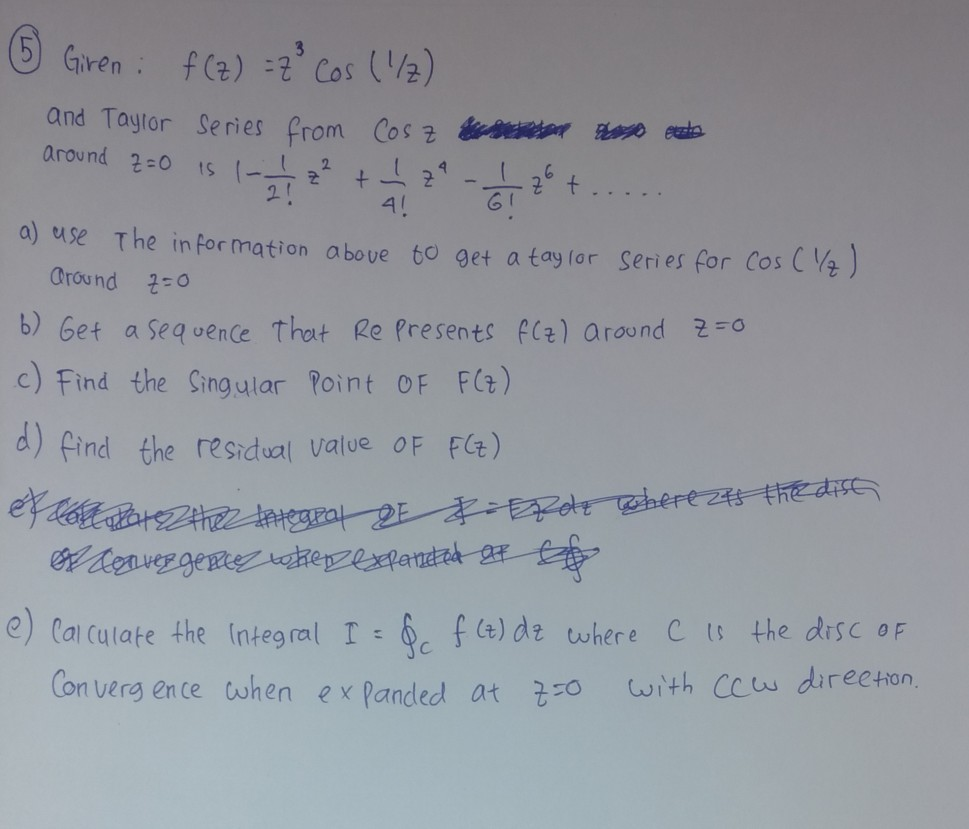 5 Given : f(z) = z³ Cos (1/z)
and Taylor Series from Cos z
around z=0 is 1 - 1/2! z² + 1/4! z⁴ - 1/6! z⁶ + .....
a) use The information above to get a taylor series for Cos (1/z)
around z=0
b) Get a sequence That Represents f(z) around z=0
c) Find the Singular Point OF F(z)
d) find the residual value OF F(z)
e) Calculate the Integral I = ∮c f(z) dz where C is the disc OF
Convergence when expanded at z=0 with CCW direction.